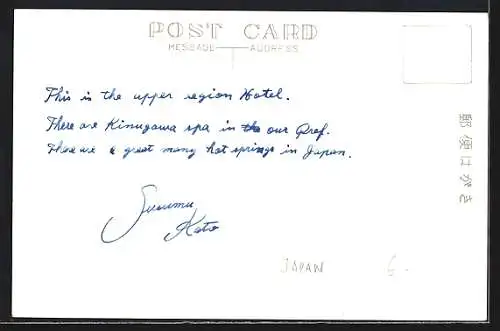 POST CARD
MESSAGE ADDRESS
This is the upper region Hotel.
There are Kinugawa spa in the our Pref.
There are a great many hot springs in Japan.
Susumu
Kato
郵便はがき
JAPAN 6-